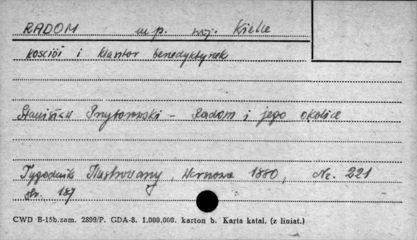 RADOM m.p. woj. Kielce
kościół i klasztor benedyktynek
Stanisław Przyborowski - Radom i jego okolice
Tygodnik Ilustrowany, Warszawa 1880, Nr. 221
str. 187
CWD B-15b.zam. 2899/P. GDA-8. 1.000.000. karton b. Karta katal. (z liniat.)